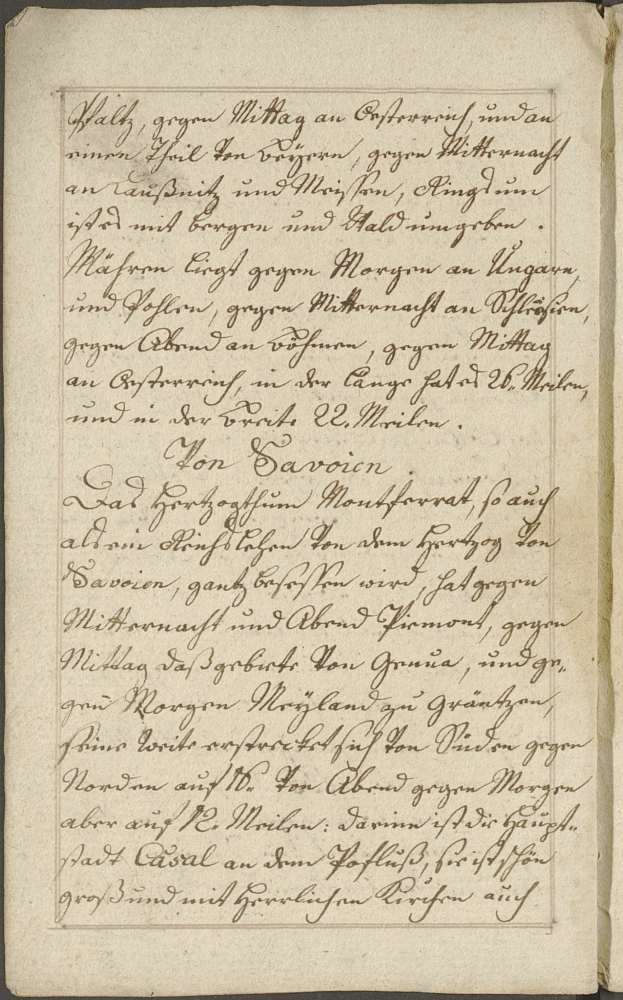 Pfaltz, gegen Mittag an Oesterreich, und an
einen Theil Von Beÿern, gegen Mitternacht
an Laußnitz und Meissen, Rings um
ist es mit Bergen und Wald umgeben.
Mähren liegt gegen Morgen an Ungarn,
und Pohlen, gegen Mitternacht an Schlesien,
gegen Abend an Böhmen, gegen Mittag
an Oesterreich, in der Länge hat es 26. Meilen,
und in der Breite 22. Meilen.
Von Savoien.
Das Hertzogthum Montferrat, so auch
als ein Reichslehen Von dem Hertzog Von
Savoien, gantz besessen wird, hat gegen
Mitternacht und Abend Piemont, gegen
Mittag daß gebiete Von Genua, und ge„
gen Morgen Meÿland zu Gräntzen,
seine Weite erstrecket sich Von Süden gegen
Norden auf 16. Von Abend gegen Morgen
aber auf 12. Meilen: darinn ist die Haupt„
stadt Casal an dem Pofluß, sie ist schön
groß und mit Herrlichen Kirchen auch